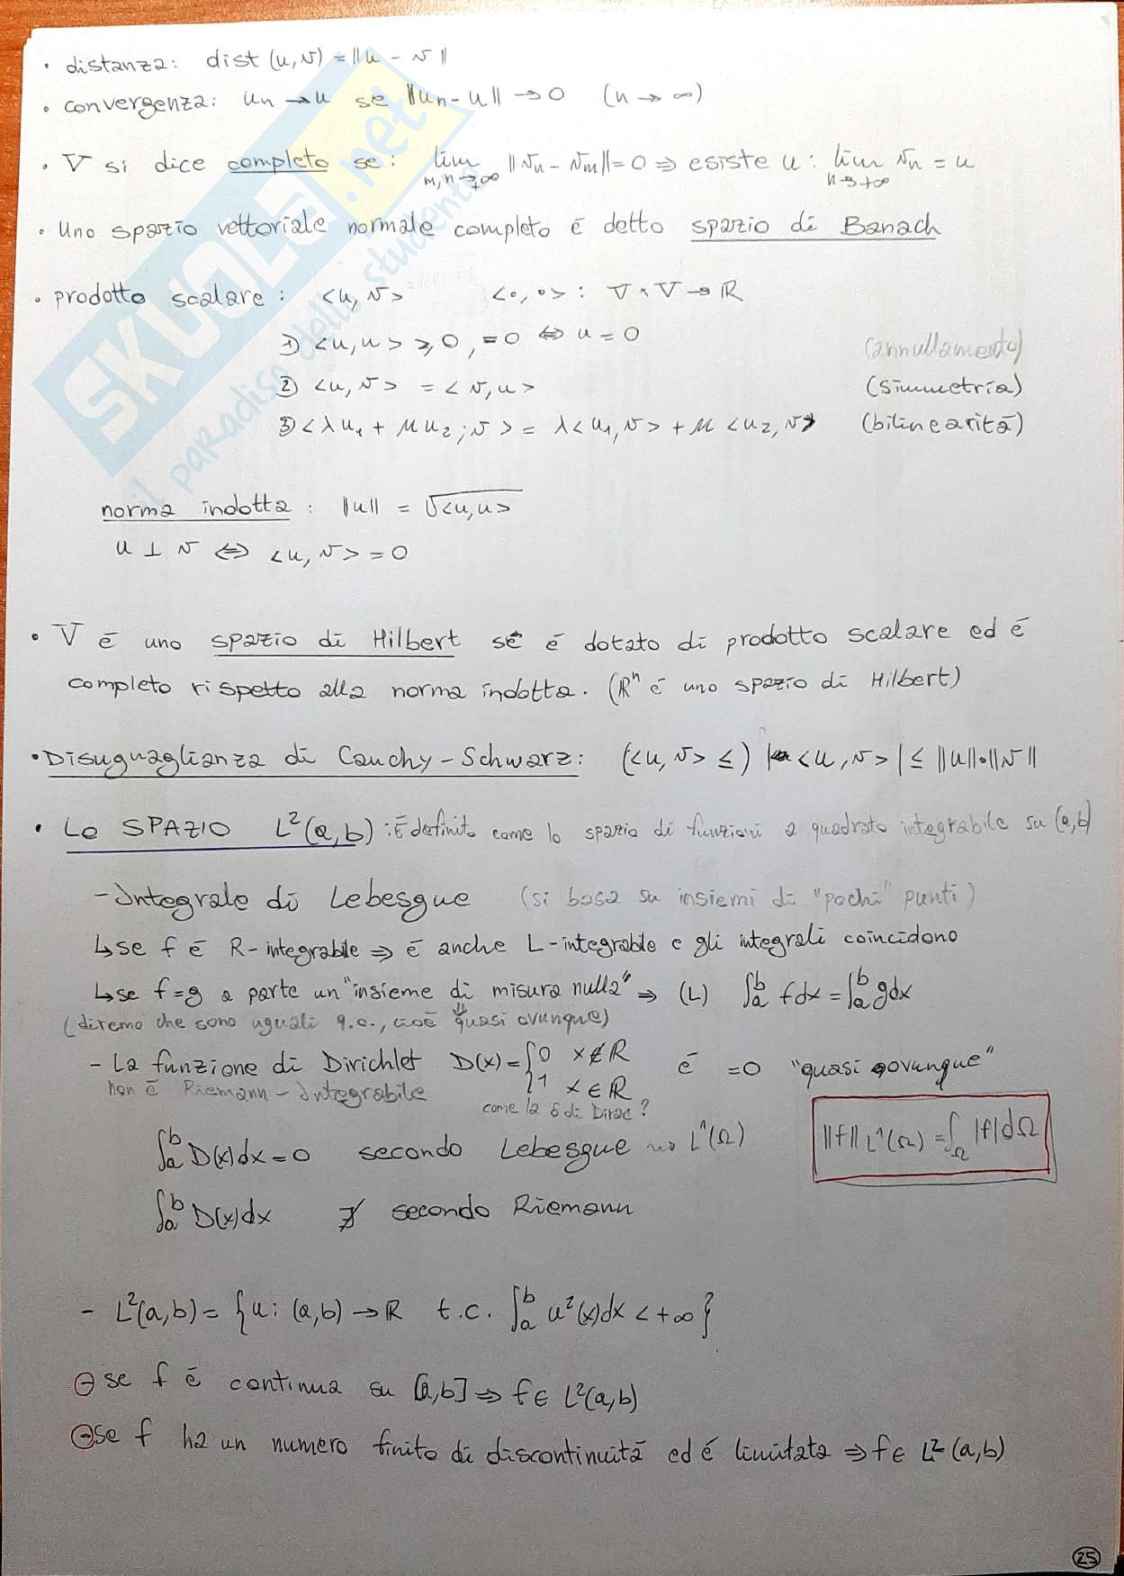 • distanza: dist (u,v) = ||u - v||
• convergenza: un → u se ||un - u|| → 0 (n → ∞)
• V si dice completo se: lim m,n→+∞ ||vn - vm|| = 0 ⇒ esiste u : lim n→+∞ vn = u
• Uno spazio vettoriale normale completo é detto spazio di Banach
• prodotto scalare: <u,v> <∘,∘>: V × V → R
1) <u,u> ≥ 0, =0 ⇔ u = 0 (annullamento)
2) <u,v> = <v,u> (simmetria)
3) <λu1 + μu2;v> = λ<u1,v> + μ<u2,v> (bilinearità)
norma indotta : ||u|| = √<u,u>
u ⊥ v ⇔ <u,v> = 0
• V é uno spazio di Hilbert se é dotato di prodotto scalare ed é
completo rispetto alla norma indotta. (Rⁿ é uno spazio di Hilbert)
• Disuguaglianza di Cauchy-Schwarz: (<u,v> ≤) |<u,v>| ≤ ||u||•||v||
• Lo SPAZIO L²(a,b) : É definito come lo spazio di funzioni a quadrato integrabile su (a,b)
- Integrale di Lebesgue (si basa su insiemi di "pochi" punti)
↳ se f é R-integrabile ⇒ é anche L-integrabile e gli integrali coincidono
↳ se f=g a parte un "insieme di misura nulla" ⇒ (L) ∫ₐᵇ fdx = ∫ₐᵇ gdx
(diremo che sono uguali q.o., cioé quasi ovunque)
- La funzione di Dirichlet D(x) = {0 x∉R é =0 "quasi ovunque"
{1 x∈R
non é Riemann-Integrabile
come la δ di Dirac?
∫ₐᵇ D(x)dx = 0 secondo Lebesgue ⇝ L¹(Ω)
||f|| L¹(Ω) = ∫Ω |f|dΩ
∫ₐᵇ D(x)dx ∄ secondo Riemann
- L²(a,b) = {u: (a,b) → R t.c. ∫ₐᵇ u²(x)dx < +∞}
⊖ se f é continua su [a,b] ⇒ f ∈ L²(a,b)
⊖ se f ha un numero finito di discontinuità ed é limitata ⇒ f ∈ L²(a,b)
25
SKUOLA.net
il paradiso dello studente